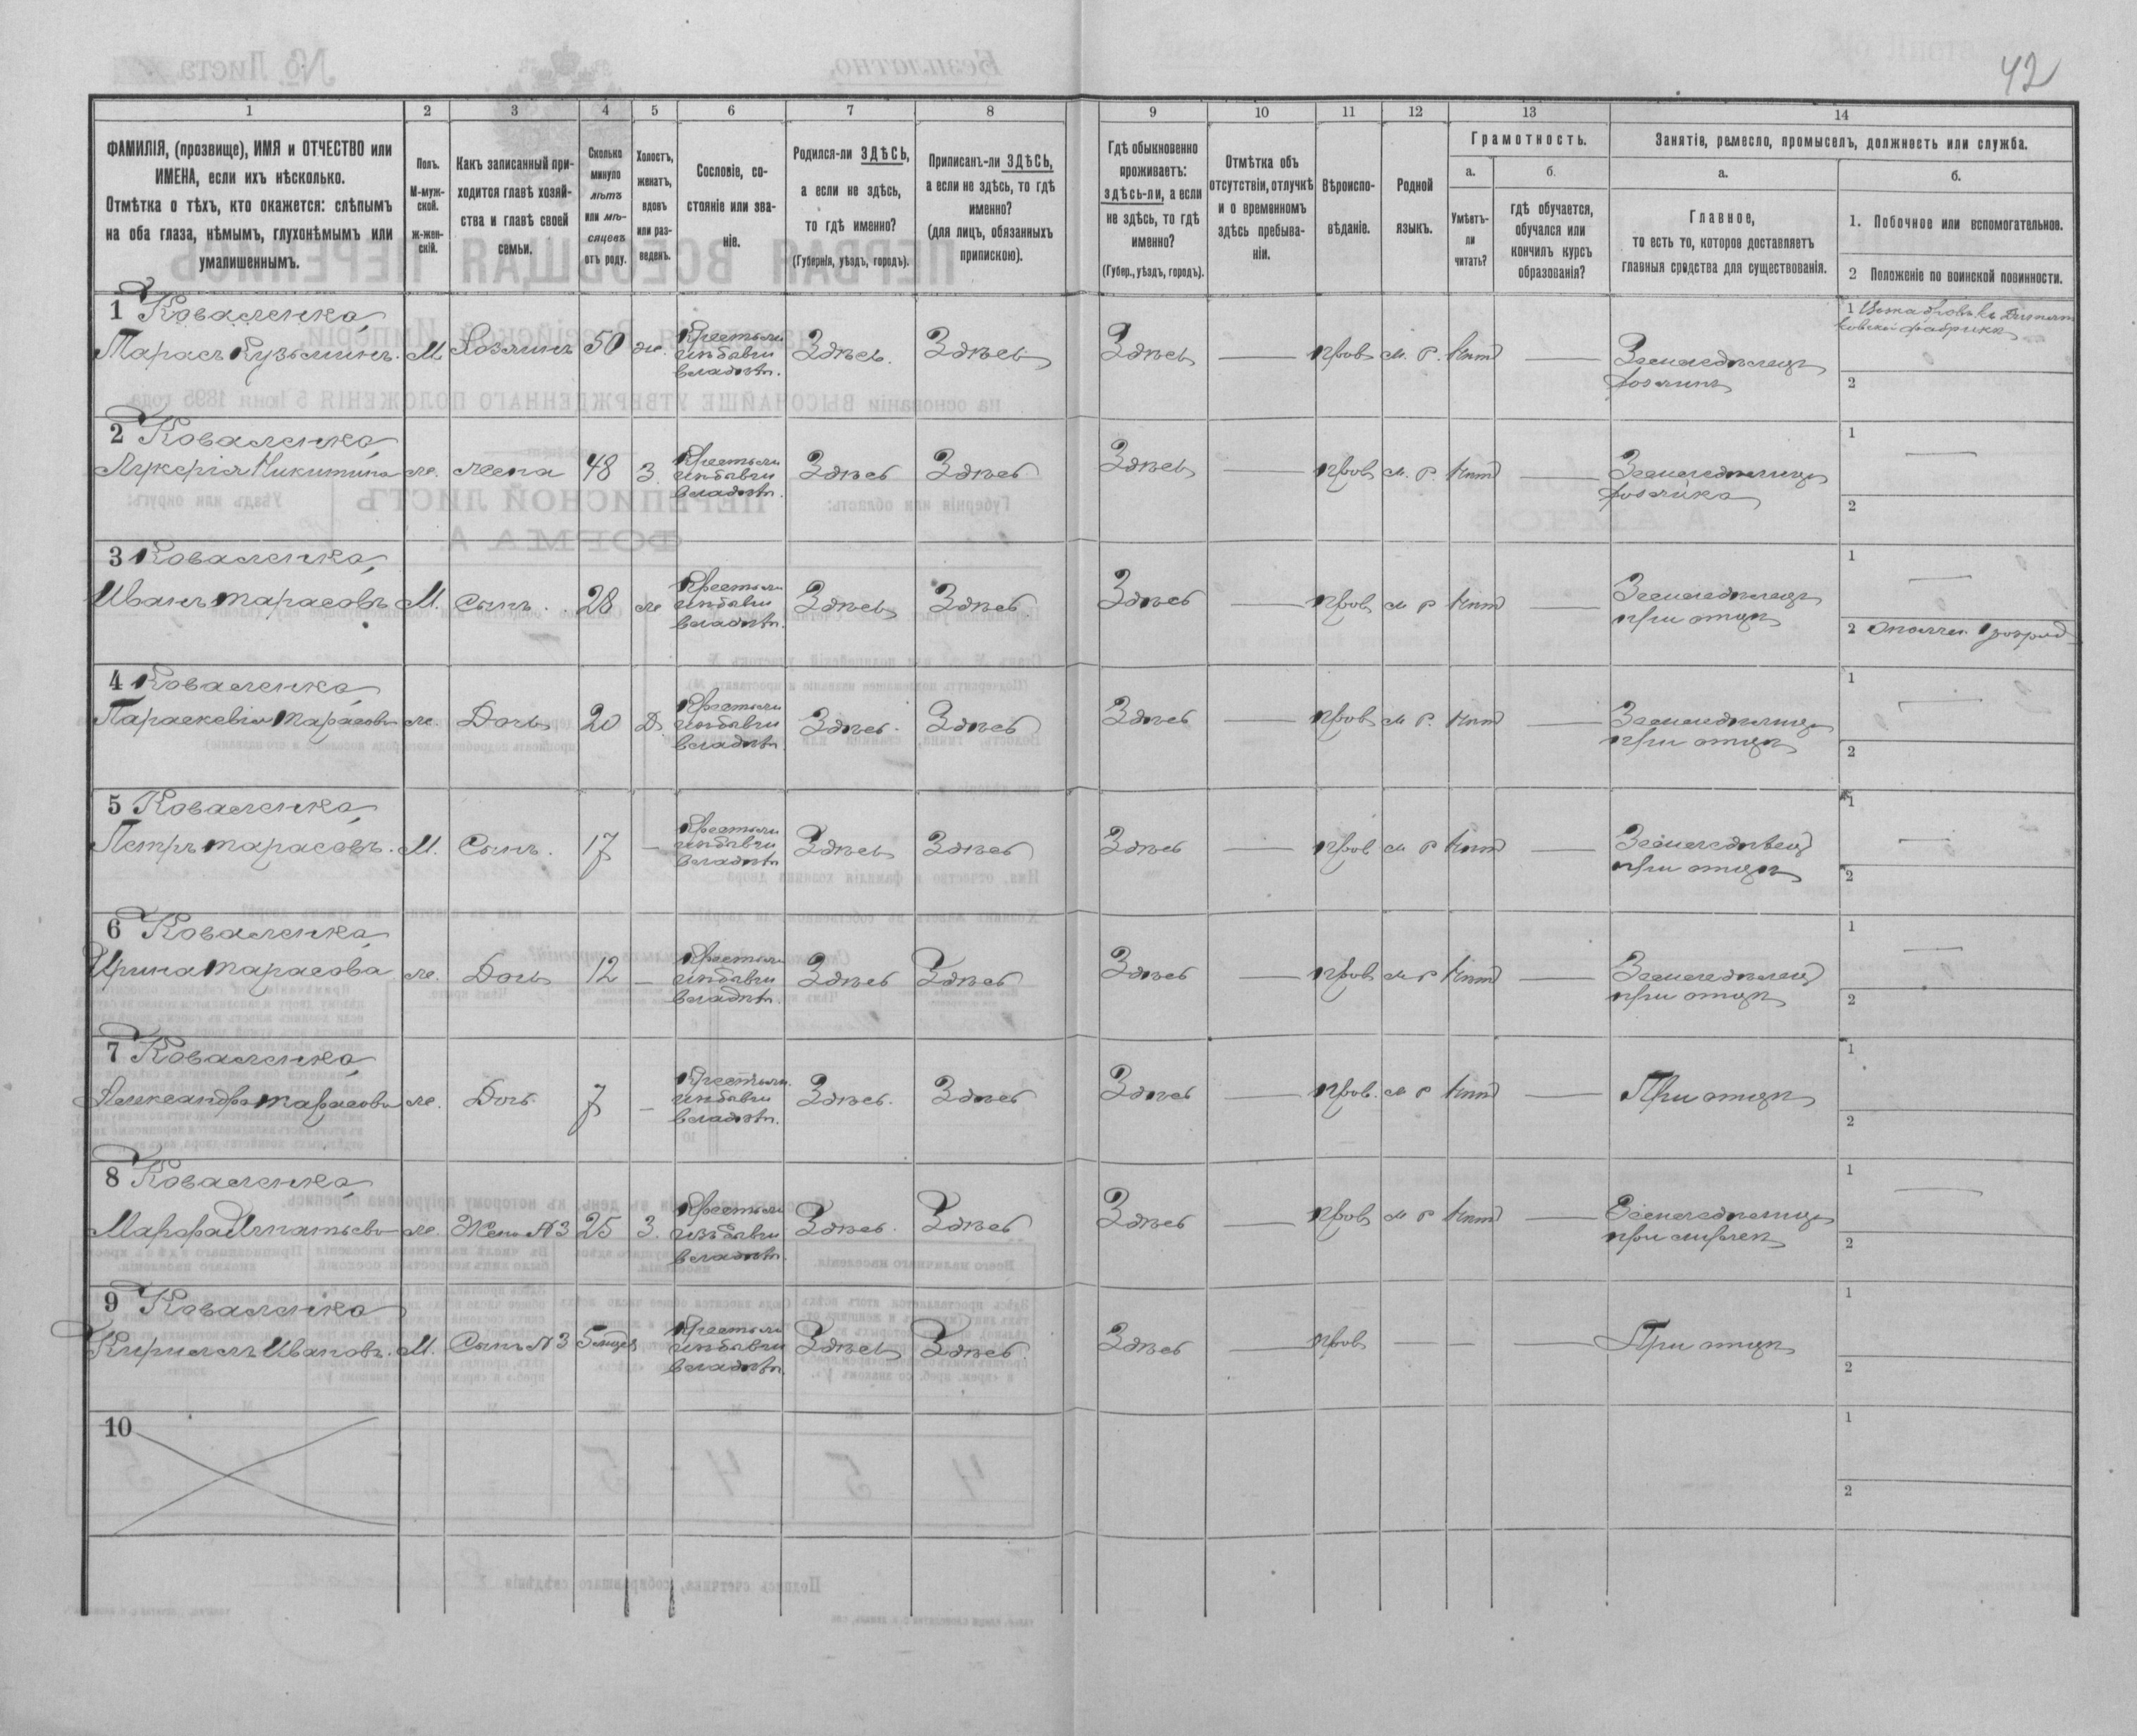 42
1 2 3 4 5 6 7 8 9 10 11 12 13 14
ФАМИЛІЯ, (прозвище), ИМЯ и ОТЧЕСТВО или
ИМЕНА, если ихъ нѣсколько.
Отмѣтка о тѣхъ, кто окажется: слѣпымъ
на оба глаза, нѣмымъ, глухонѣмымъ или
умалишеннымъ.
Полъ.
М-муж-
ской.
ж-жен-
скій.
Какъ записанный при-
ходится главѣ хозяй-
ства и главѣ своей
семьи.
Сколько
минуло
лѣтъ
или мѣ-
сяцевъ
отъ роду.
Холостъ,
женатъ,
вдовъ
или раз-
веденъ.
Сословіе, со-
стояніе или зва-
ніе.
Родился-ли ЗДѢСЬ,
а если не здѣсь,
то гдѣ именно?
(Губернія, уѣздъ, городъ).
Приписанъ-ли ЗДѢСЬ,
а если не здѣсь, то гдѣ
именно?
(для лицъ, обязанныхъ
припискою).
Гдѣ обыкновенно
проживаетъ:
здѣсь-ли, а если
не здѣсь, то гдѣ
именно?
(Губер., уѣздъ, городъ).
Отмѣтка объ
отсутствіи, отлучкѣ
и о временномъ
здѣсь пребыва-
ніи.
Вѣроиспо-
вѣданіе.
Родной
языкъ.
Грамотность.
а.
Умѣетъ-
ли
читать?
б.
гдѣ обучается,
обучался или
кончилъ курсъ
образованія?
Занятіе, ремесло, промыселъ, должность или служба.
а.
Главное,
то есть то, которое доставляетъ
главныя средства для существованія.
б.
1. Побочное или вспомогательное.
2 Положеніе по воинской повинности.
1 Коваленко
Тарасъ Кузьминъ. М Хозяинъ 50 ж. Крестьян избывш владѣт. Здѣсь. Здѣсь Здѣсь — прав м. р. нѣтъ — Земледѣлецъ хозяинъ 1
2
2 Коваленко
Лукерія Никитина ж. жена 48 З. Крестьян избывш владѣт. Здѣсь Здѣсь Здѣсь — прав м. р нѣтъ — Земледѣлица хозяйка 1 —
2
3 Коваленко
Иванъ Тарасовъ М. Сынъ. 28 ж Крестьян избывш владѣт. Здѣсь Здѣсь Здѣсь — прав м р нѣтъ — Земледѣлецъ при отцѣ 1 —
2 Ополчен. 1 розряд
4 Коваленко
Параскевія Тарасова ж. Дочь 20 Д. Крестьян избывш владѣт. Здѣсь. Здѣсь Здѣсь — прав м р. нѣтъ — Земледѣлица при отцѣ 1 —
2
5 Коваленко
Петръ Тарасовъ. М. Сынъ. 17 — Крестьян избывш владѣт Здѣсь Здѣсь Здѣсь — прав м р нѣтъ — Земледѣлец при отцѣ 1 —
2
6 Коваленко
Ирина Тарасова ж. Дочь 12 — Крестьян избывш владѣт. Здѣсь Здѣсь Здѣсь — прав м р нѣтъ — Земледѣлец при отцѣ 1 —
2
7 Коваленко
Александра Тарасова ж. Дочь. 7 — Крестьян. избывш владѣт. Здѣсь. Здѣсь Здѣсь — прав. м р нѣтъ — При отцѣ 1
2
8 Коваленко
Марфа Игнатьева ж. Жена №3 25 З. Крестьян избывш владѣт. Здѣсь. Здѣсь Здѣсь — прав м р нѣтъ — Земледѣлица при мужѣ 1 —
2
9 Коваленко
Кирилъ Ивановъ. М. Сынъ №3 5 Крестьян избывш владѣт. Здѣсь Здѣсь Здѣсь — прав — — — При отцѣ 1
2
10 1
2